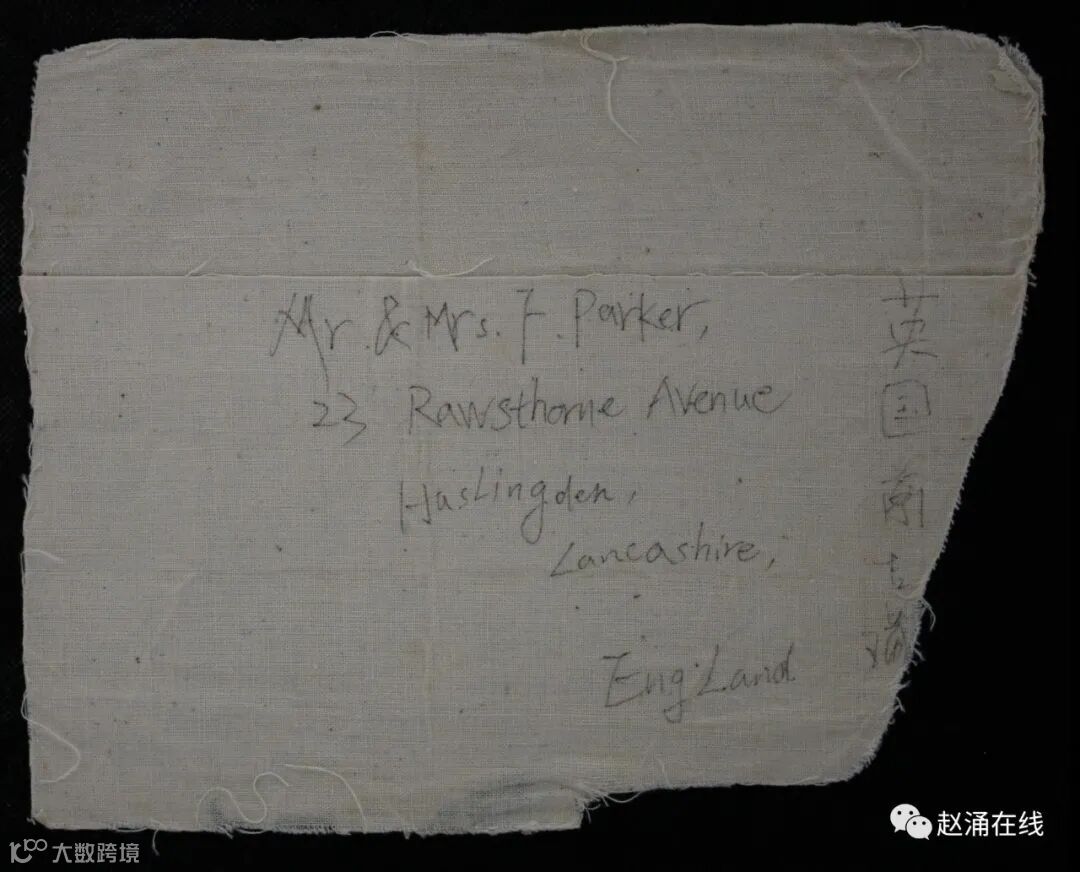 Mr. & Mrs. F. Parker,
23 Rawsthorne Avenue
Haslingden,
Lancashire,
England
英国
赵涌在线
大数跨境